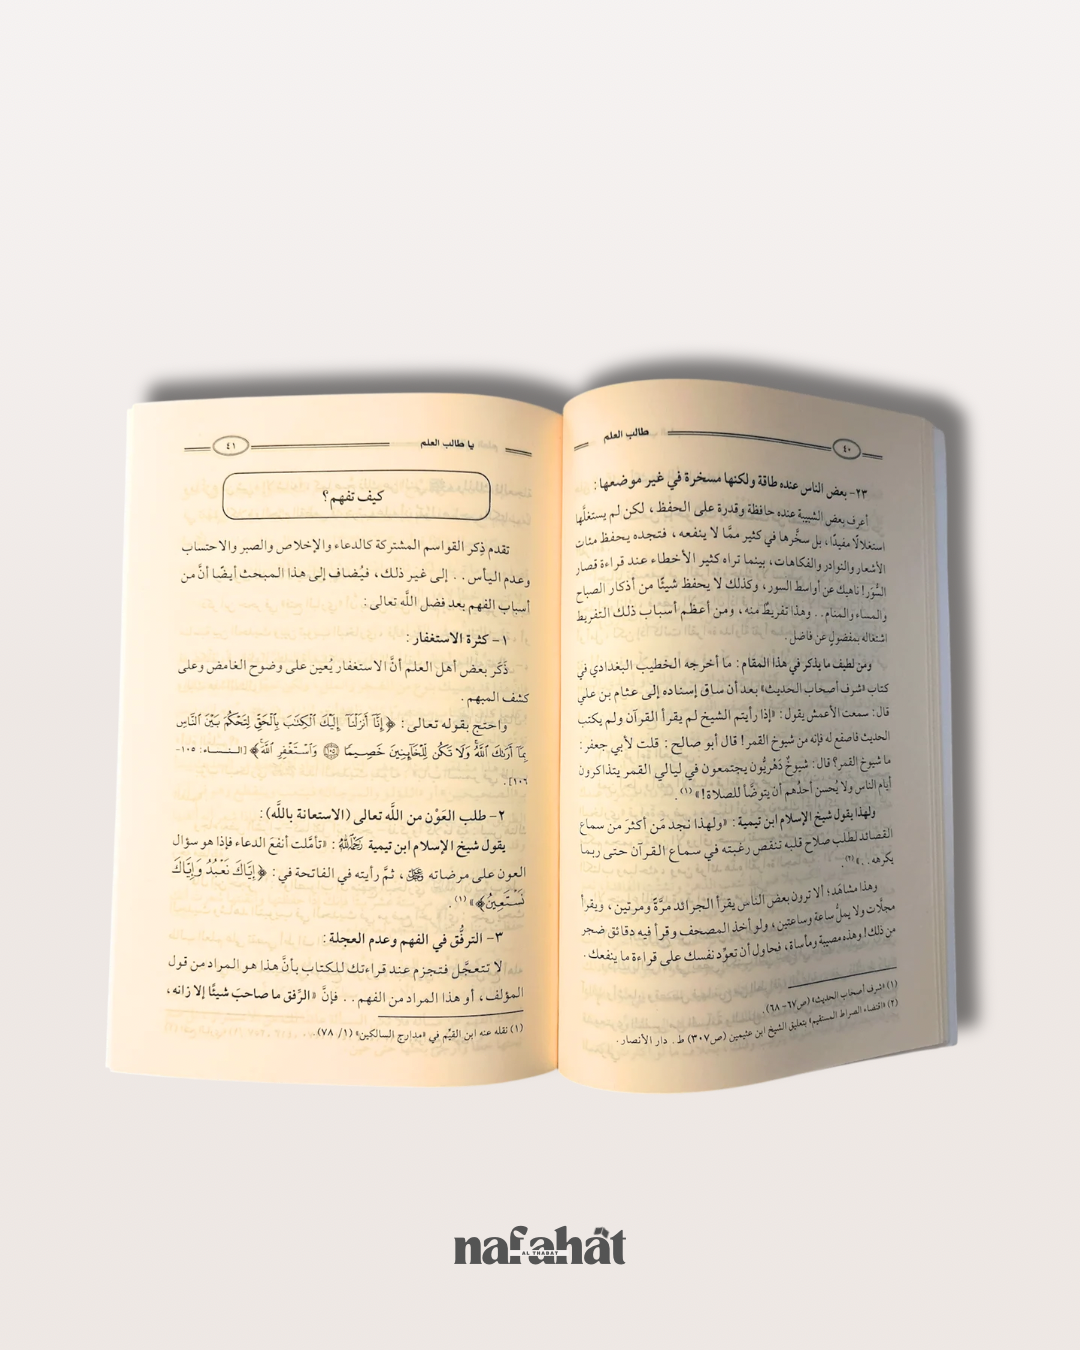 ٤٠
طالب العلم
٢٣- بعض الناس عنده طاقة ولكنها مسخرة في غير موضعها :
أعرف بعض الشبيبة عنده حافظة وقدرة على الحفظ ، لكن لم يستغلَّها
استغلالًا مفيدًا ، بل سخَّرها في كثير ممَّا لا ينفعه ، فتجده يحفظ مئات
الأشعار والنوادر والفكاهات ، بينما تراه كثير الأخطاء عند قراءة قصار
السُّوَر! ناهيك عن أواسط السور ، وكذلك لا يحفظ شيئًا من أذكار الصباح
والمساء والمنام . . وهذا تفريطٌ منه ، ومن أعظم أسباب ذلك التفريط
اشتغاله بمفضولٍ عن فاضل .
ومن لطيف ما يذكر في هذا المقام : ما أخرجه الخطيب البغدادي في
كتاب «شرف أصحاب الحديث» بعد أن ساق إسناده إلى عثام بن علي
قال : سمعت الأعمش يقول : «إذا رأيتم الشيخ لم يقرأ القرآن ولم يكتب
الحديث فاصفع له فإنه من شيوخ القمر! قال أبو صالح : قلت لأبي جعفر :
ما شيوخ القمر؟ قال : شيوخٌ دَهْريُّون يجتمعون في ليالي القمر يتذاكرون
أيام الناس ولا يُحسن أحدُهم أن يتوضَّأ للصلاة!» (١) .
ولهذا يقول شيخ الإسلام ابن تيمية : «ولهذا نجد مَن أكثرَ من سماع
القصائد لطلب صلاح قلبه تنقص رغبته في سماع القرآن حتى ربما
يكرهه . .» (٢) .
وهذا مشاهَد؛ ألا ترون بعض الناس يقرأ الجرائد مرَّةً ومرتين ، ويقرأ
مجلَّات ولا يملُّ ساعة وساعتين ، ولو أخذ المصحف وقرأ فيه دقائق ضجر
من ذلك! وهذه مصيبة ومأساة ، فحاول أن تعوِّد نفسك على قراءة ما ينفعك .
(١) «شرف أصحاب الحديث» (ص٦٧- ٦٨) .
(٢) «اقتضاء الصراط المستقيم» بتعليق الشيخ ابن عثيمين (ص٣٠٧) ط . دار الأنصار .
يا طالب العلم
٤١
كيف تفهم؟
تقدم ذِكر القواسم المشتركة كالدعاء والإخلاص والصبر والاحتساب
وعدم اليأس . . إلى غير ذلك ، فيُضاف إلى هذا المبحث أيضًا أنَّ من
أسباب الفهم بعد فضل اللَّه تعالى :
١- كثرة الاستغفار :
ذَكَر بعض أهل العلم أنَّ الاستغفار يُعين على وضوح الغامض وعلى
كشف المبهم .
واحتج بقوله تعالى : ﴿إِنَّآ أَنزَلْنَآ إِلَيْكَ ٱلْكِتَٰبَ بِٱلْحَقِّ لِتَحْكُمَ بَيْنَ ٱلنَّاسِ
بِمَآ أَرَىٰكَ ٱللَّهُ وَلَا تَكُن لِّلْخَآئِنِينَ خَصِيمًا ۝١٠٥ وَٱسْتَغْفِرِ ٱللَّهَ﴾ [النساء: ١٠٥-
١٠٦] .
٢- طلب العَوْن من اللَّه تعالى (الاستعانة باللَّه) :
يقول شيخ الإسلام ابن تيمية رَحِمَهُ اللَّهُ : «تأمَّلت أنفعَ الدعاء فإذا هو سؤال
العون على مرضاته ﷻ ، ثمَّ رأيته في الفاتحة في : ﴿إِيَّاكَ نَعْبُدُ وَإِيَّاكَ
نَسْتَعِينُ﴾» (١) .
٣- الترفُّق في الفهم وعدم العجلة :
لا تتعجَّل فتجزم عند قراءتك للكتاب بأنَّ هذا هو المراد من قول
المؤلف ، أو هذا المراد من الفهم . . فإنَّ «الرِّفق ما صاحبَ شيئًا إلا زانه ،
(١) نقله عنه ابن القيِّم في «مدارج السالكين» (١/ ٧٨) .
nafahât
AL THABAT